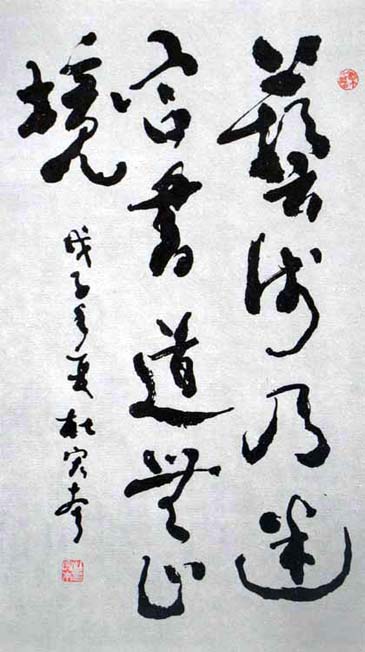 藝術乃迷
宮書道無止
境
戊子之夏 杜